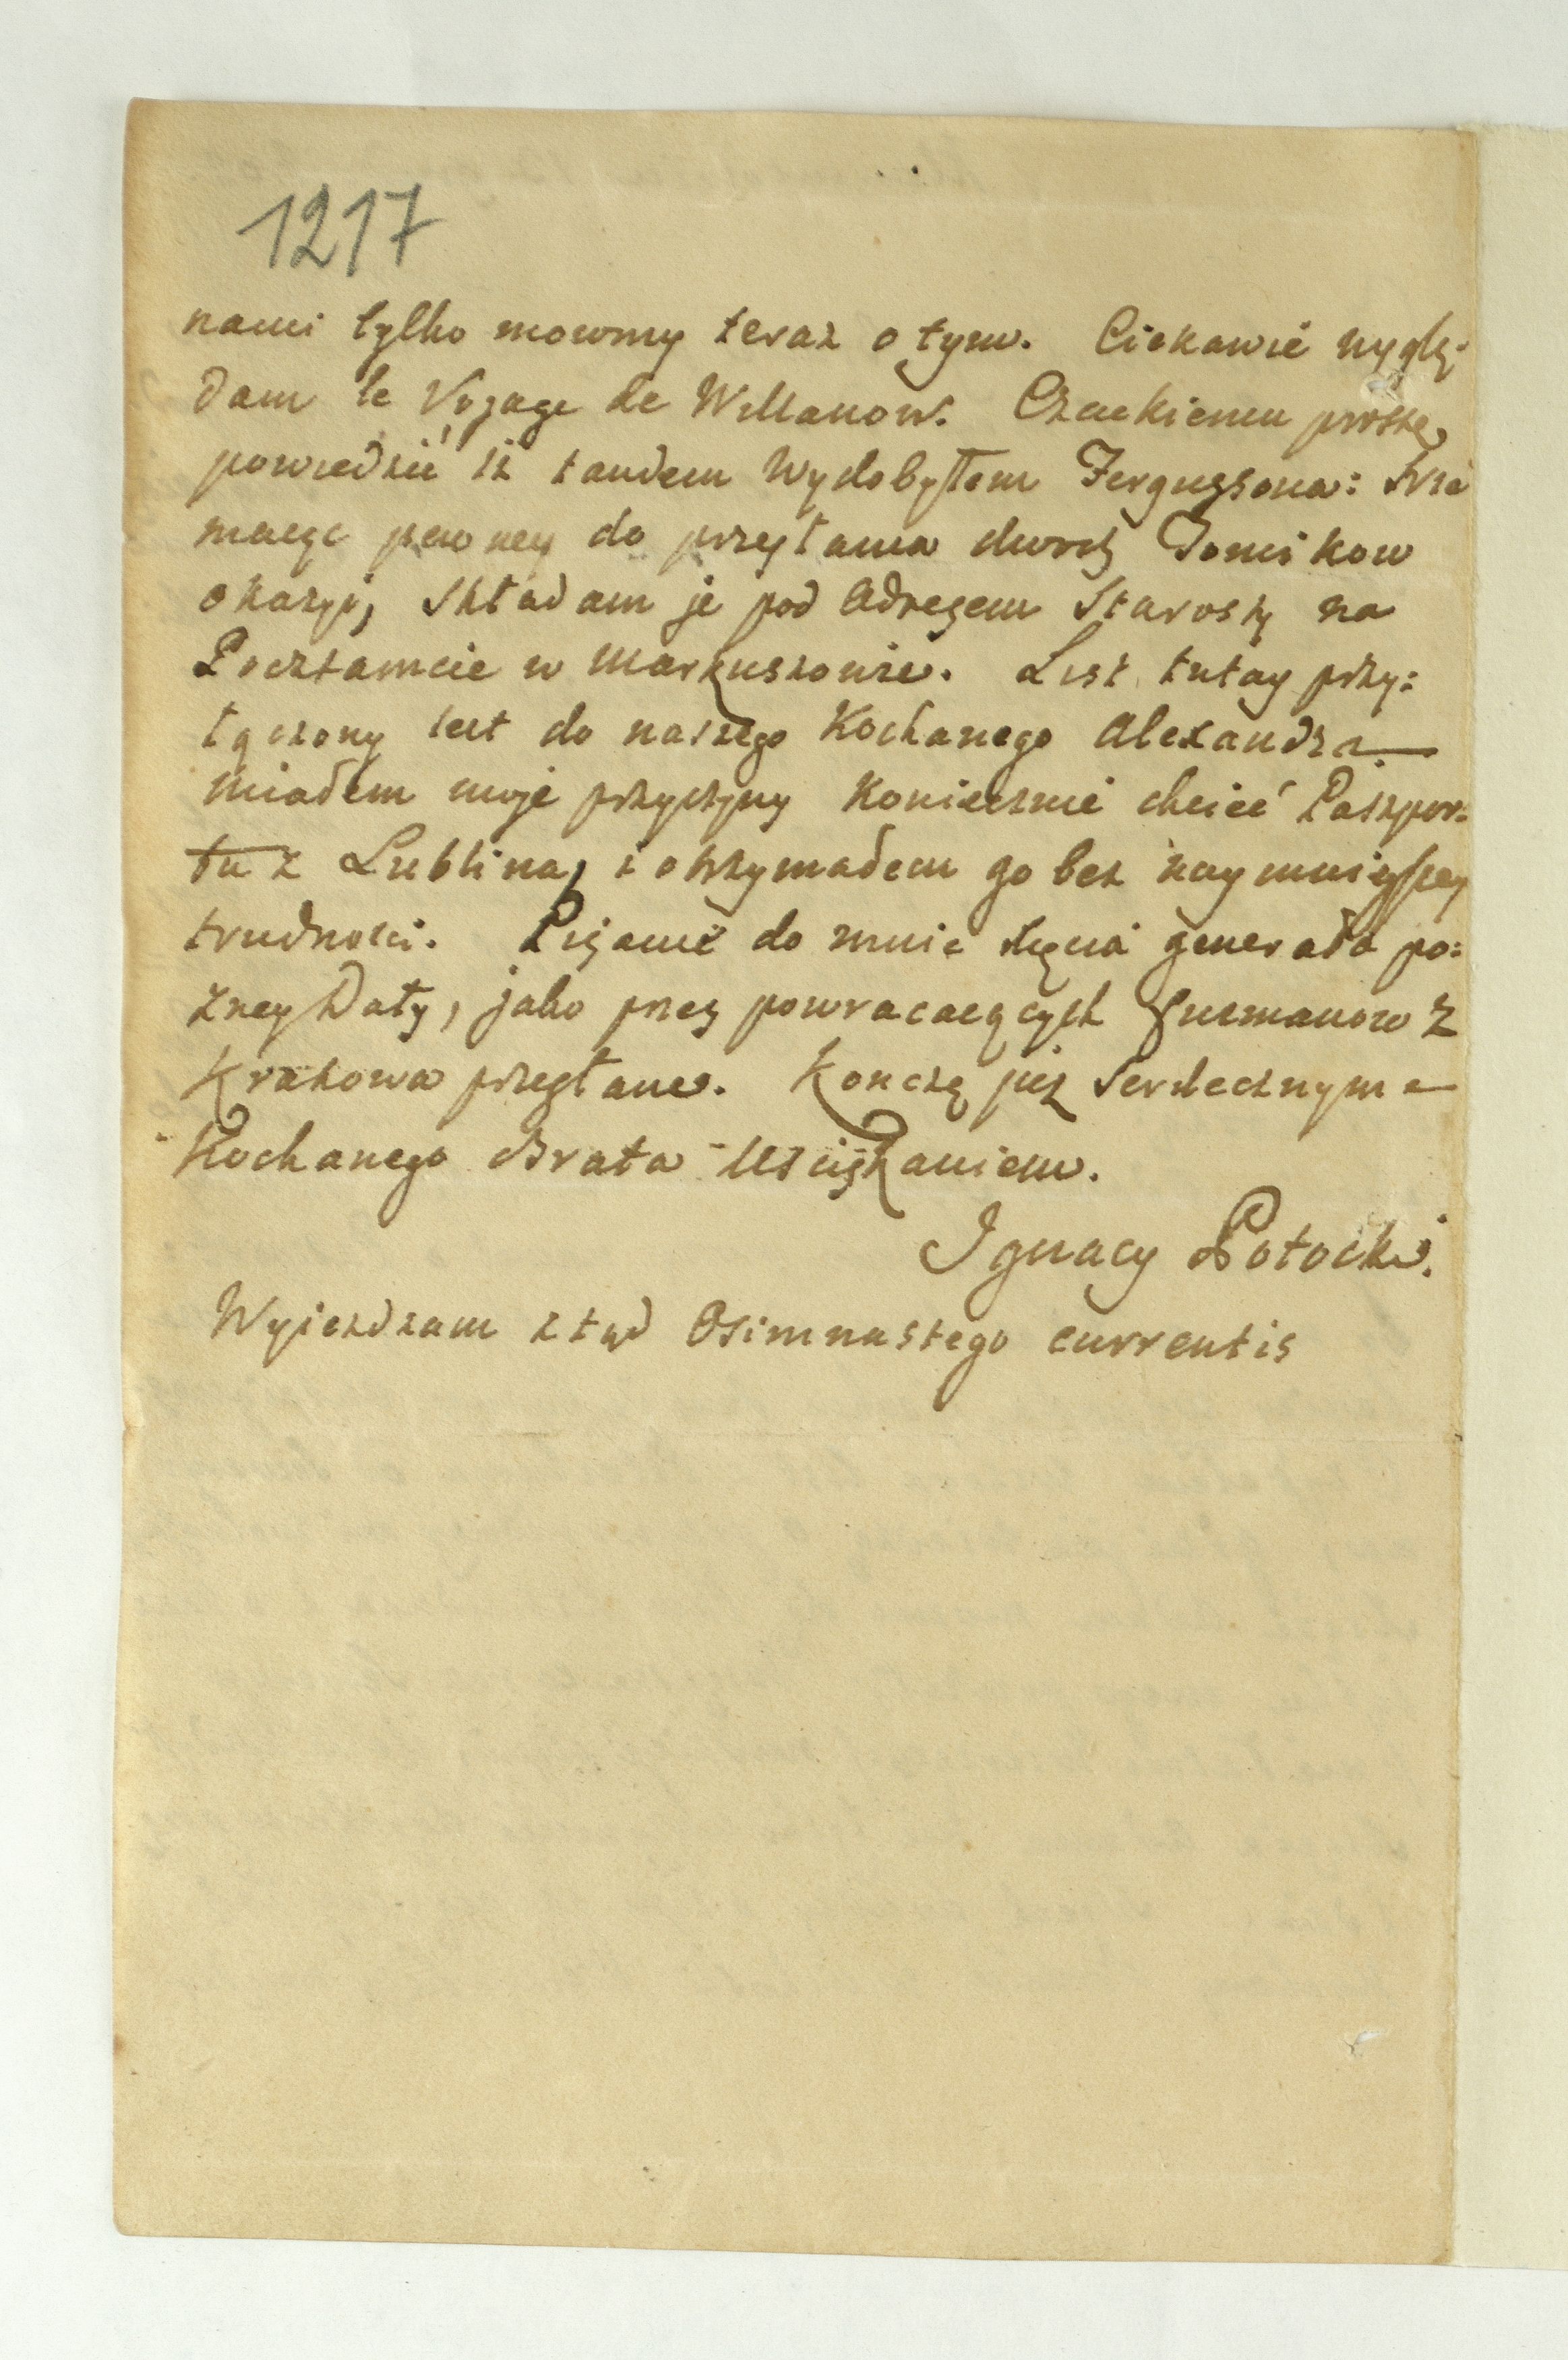 1217
nami tylko mowmy teraz o tym. Ciekawie wyglą-
dam le Voyage de Willanow. Czackiemu proszę
powiedzić iż tandem wydobyłem Fergussona: Nie
maiąc pewney do przesłania dwoch Tomikow
okazyi, składam je pod Adresem Starosty na
Pocztamcie w Markuszowie. List tutay przy:
łączony iest do naszego Kochanego Alexandra.
Miałem moje przyczyny Koniecznie chcieć Paszpor:
tu z Lublina, i otrzymałem go bez naymnieyszey
trudności. Pisanie do mnie Xięcia generała po:
zney Daty, jako przez powracaiących Furmanow z
Krakowa przesłane. Kończę już Serdecznym
Kochanego Brata Usciskaniem.
Ignacy Potocki.
Wyiezdzam ztąd Osimnastego currentis